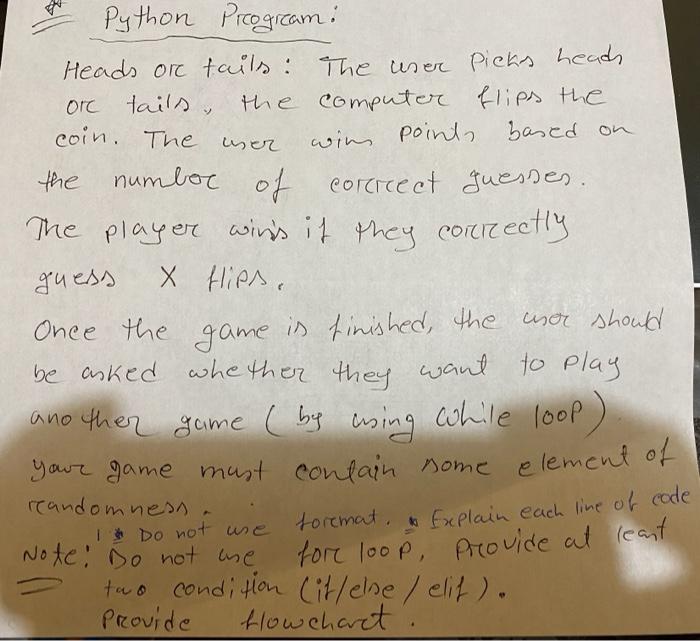 Python Program:
Heads or tails: The user picks heads
or tails, the computer flips the
coin. The user wins points based on
the number of correct guesses.
The player wins if they correctly
guess X flips.
Once the game is finished, the user should
be asked whether they want to play
another game (by using while loop)
your game must contain some element of
randomness.
1 * Do not use format. * Explain each line of code
Note: Do not use for loop, Provide at least
two condition (if/else/elif).
Provide flowchart.